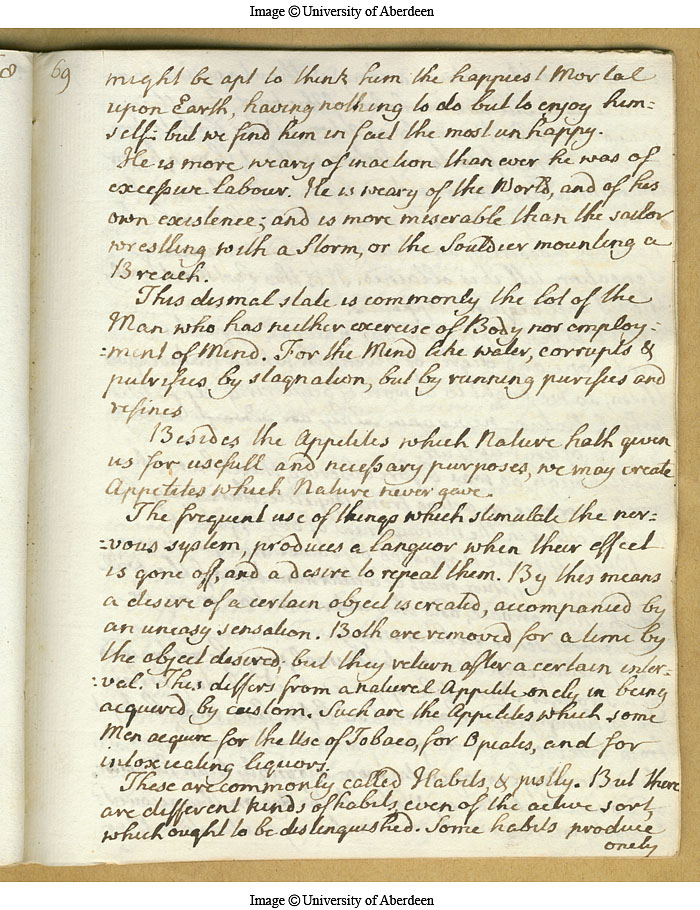 Image © University of Aberdeen
69
might be apt to think him the happiest Mortal
upon Earth, having nothing to do but to enjoy him=
self: but we find him in fact the most unhappy.
He is more weary of inaction than ever he was of
excessive labour. He is weary of the World, and of his
own existence; and is more miserable than the sailor
wrestling with a Storm, or the Souldier mounting a
Breach.
This dismal state is commonly the lot of the
Man who has neither exercise of Body nor employ=
=ment of Mind. For the Mind like water, corrupts &
putrifies by stagnation, but by running purifies and
refines
Besides the Appetites which Nature hath given
us for usefull and necessary purposes, we may create
Appetites which Nature never gave.
The frequent use of things which stimulate the ner=
=vous system, produces a languor when their effect
is gone off, and a desire to repeat them. By this means
a desire of a certain object is created, accompanied by
an uneasy sensation. Both are removed for a time by
the object desired; but they return after a certain inter=
=val. This differs from a natural Appetite onely in being
acquired by custom. Such are the Appetites which some
Men acquire for the Use of Tobaco, for Opeates, and for
intoxicating liquors.
These are commonly called Habits, & justly. But there
are different kinds of habits, even of the active sort,
which ought to be distinguished. Some habits produce
onely
Image © University of Aberdeen